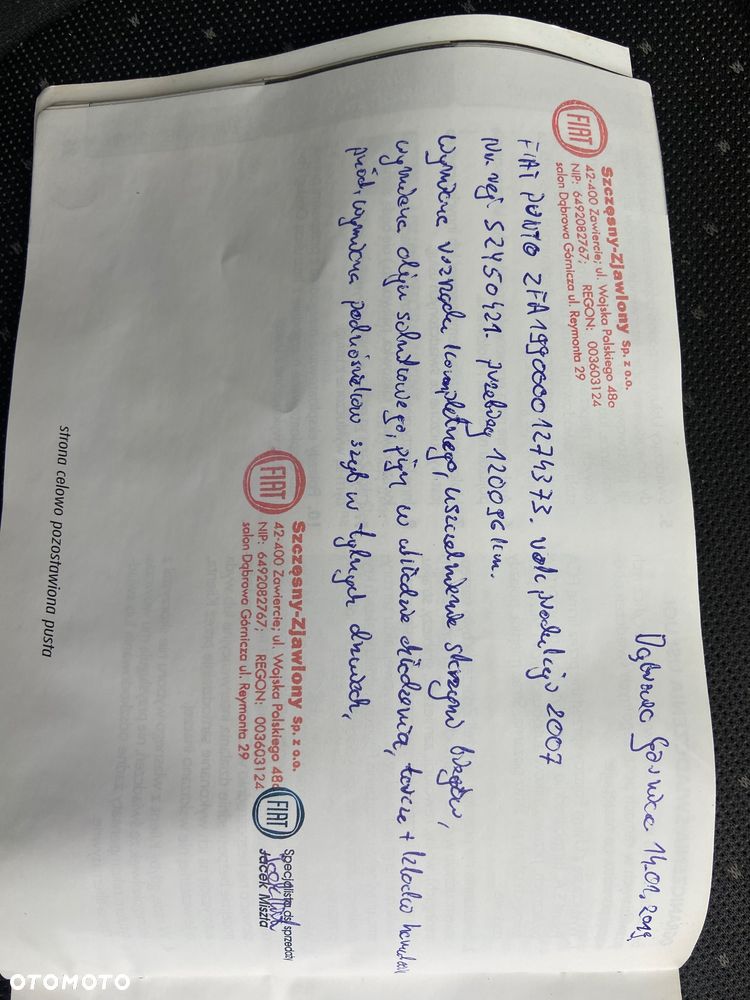 FIAT
Szczęsny-Zjawiony Sp. z o.o.
42-400 Zawiercie; ul. Wojska Polskiego 48a
NIP: 6492082767; REGON: 003603124
salon Dąbrowa Górnicza ul. Reymonta 29
Dąbrowa Górnicza 14.01.2019
FIAT PUNTO ZFA19900001274373. rok produkcji 2007
Nr rej SZ450421. przebieg 120096 km.
Wymiana rozrządu kompletnego, uszczelnienie skrzyni biegów,
wymiana oleju silnikowego, płyn w układzie chłodzenia, tarcze + klocki
przód, wymiana podnośników szyb w tylnych drzwiach,
FIAT
Szczęsny-Zjawiony Sp. z o.o.
42-400 Zawiercie; ul. Wojska Polskiego 48a
NIP: 6492082767; REGON: 003603124
salon Dąbrowa Górnicza ul. Reymonta 29
FIAT
Specjalista ds. sprzedaży
Jacek Miszta
strona celowo pozostawiona pusta
OTOMOTO